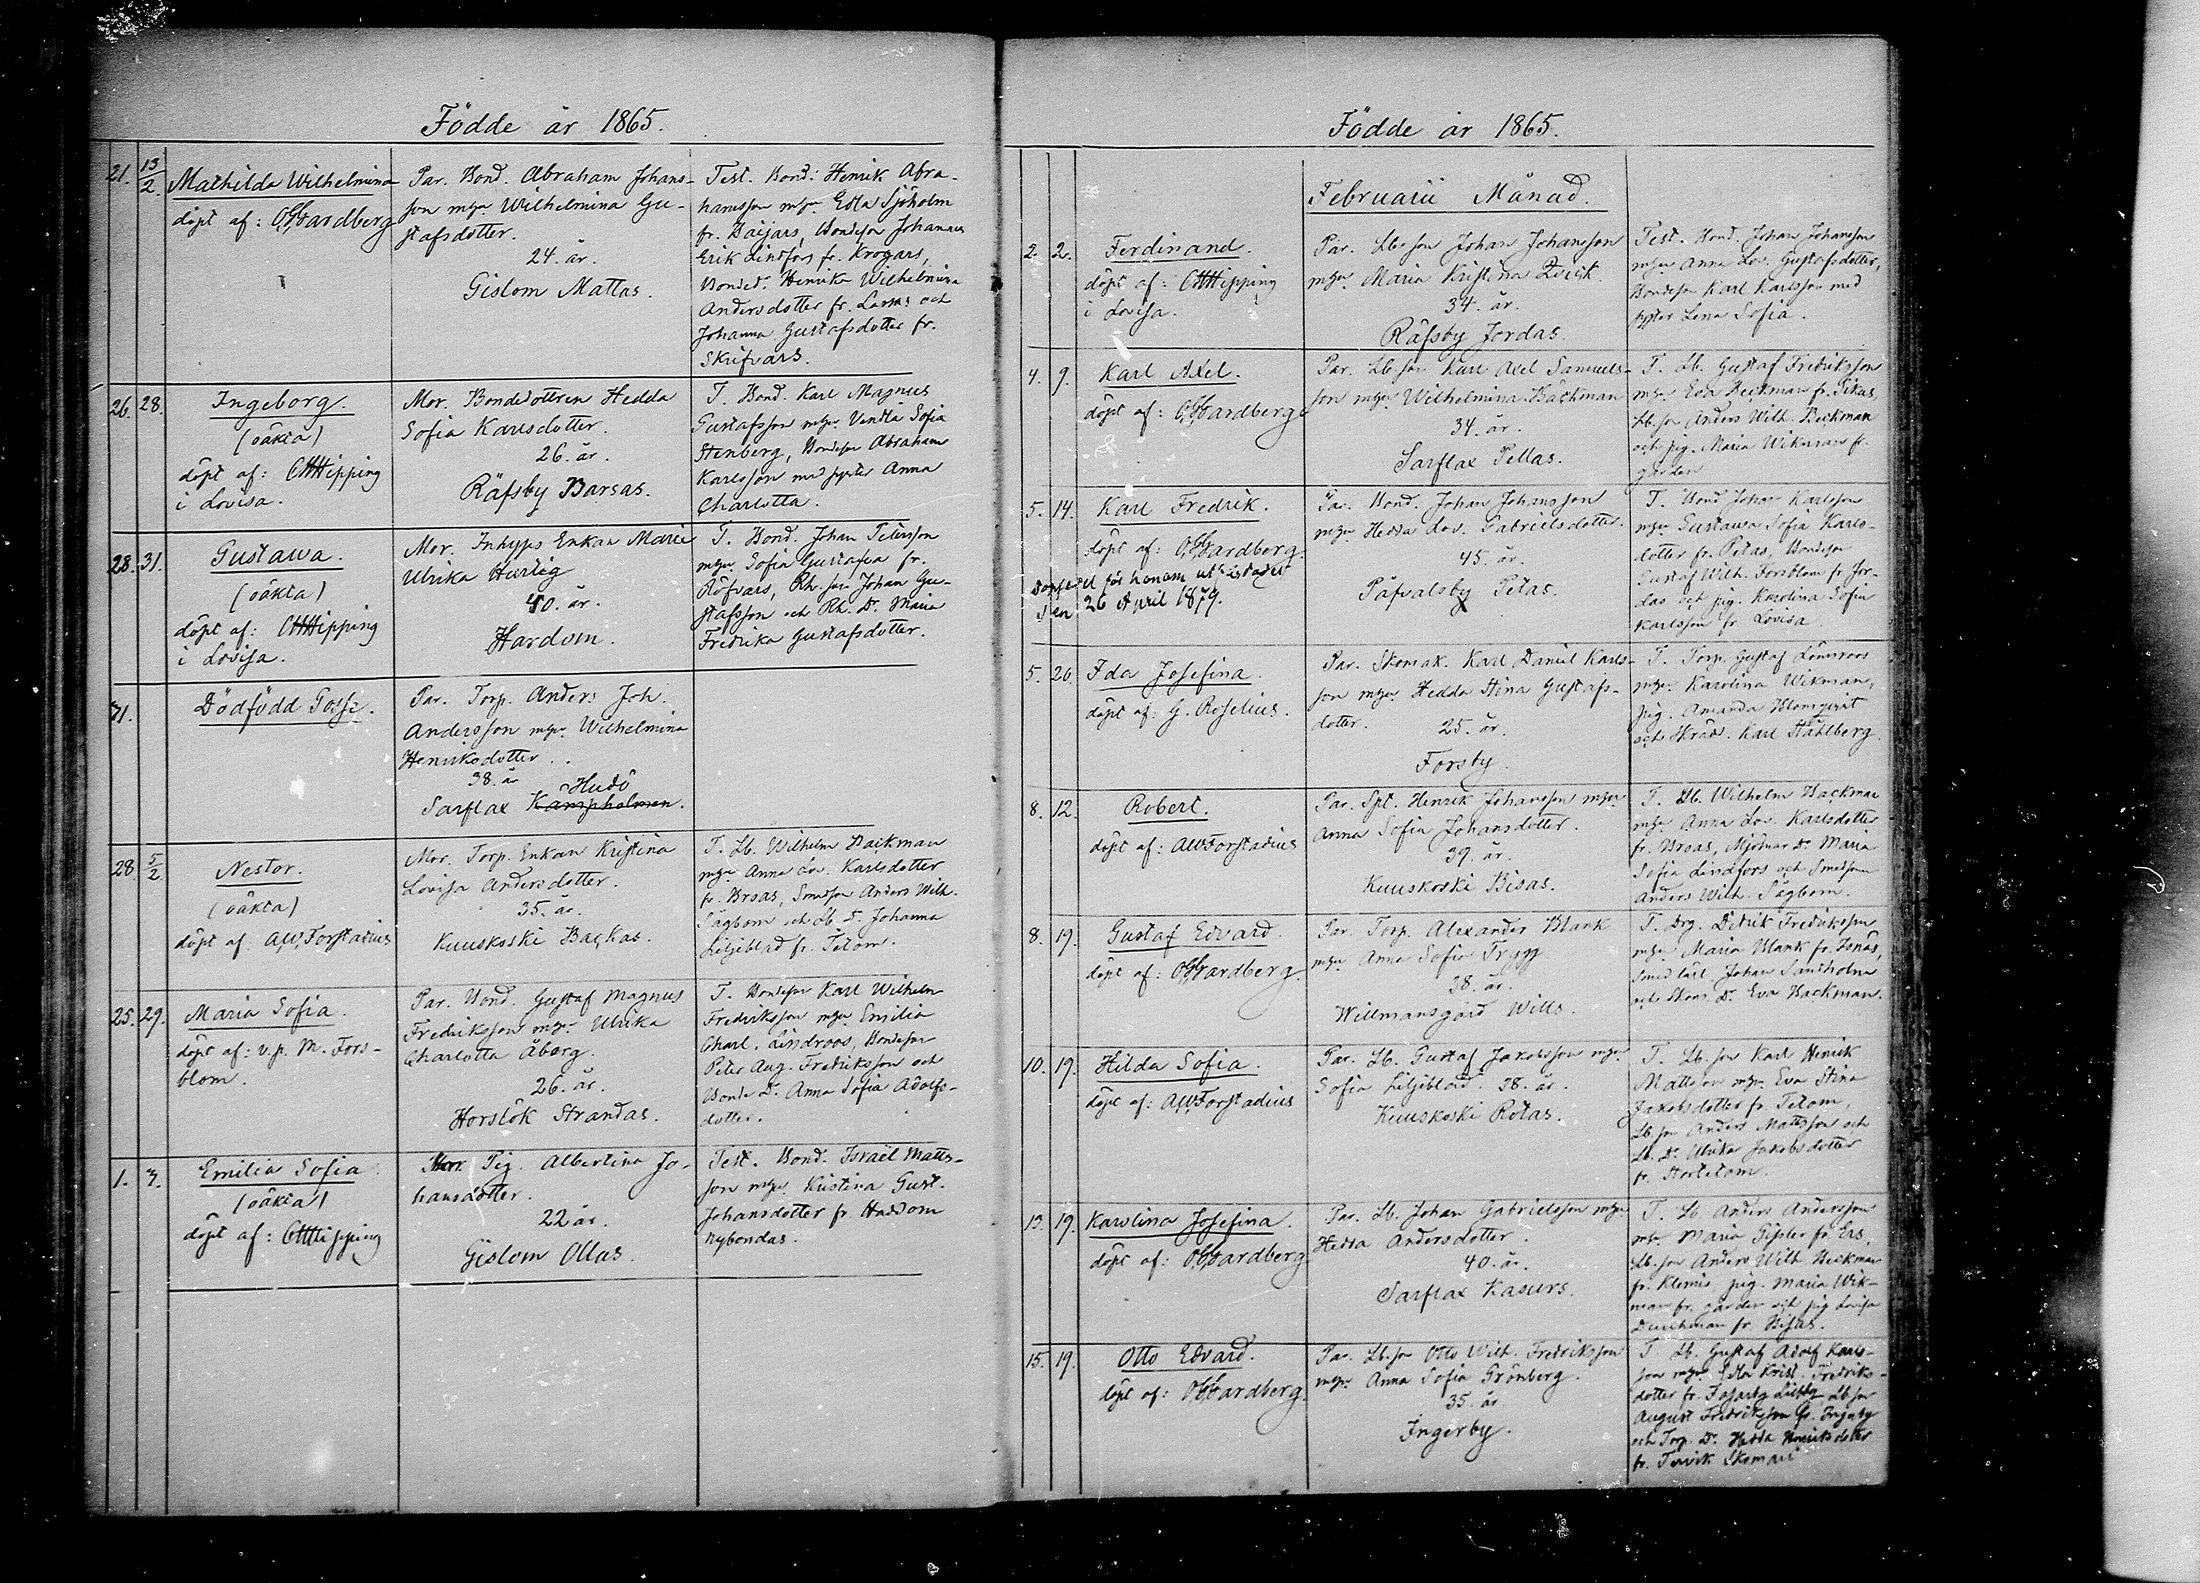 Födde år 1865.
21. 13/2. Mathilda Wilhelmina
döpt af: Gardberg
Par. Bond. Abraham Johans-
son m hu. Wilhelmina Gu-
stafsdotter.
24. år.
Gislom Mattas.
Test. Bond: Henrik Abra-
hamsson m hu. Edla Sjöholm
fr. Baijars, Bondeson Johannes
Erik Lindfors fr. Krogars,
Bonded. Henrika Wilhelmina
Andersdotter fr. Lassas och
Johanna Gustafsdotter fr.
Skrifvars.
26. 28. Ingeborg.
(oäkta)
döpt af: Hipping
i Lovisa.
Mor. Bondedottren Hedda
Sofia Karlsdotter.
26. år.
Räfsby Barsas.
T. Bond. Karl Magnus
Gustafsson m hu. Vendla Sofia
Stenberg, Bondeson Abraham
Karlsson med syster Anna
Charlotta.
28. 31. Gustawa.
(oäkta)
döpt af: Hipping
i Lovisa.
Mor. Inhyses Enkan Marie
Ulrika Hurtig
40. år.
Hardom.
T. Bond. Johan Petersson
m hu. Sofia Gustafva fr.
Röfvars, Rh. son Johan Gu-
stafsson och Rh. D. Maria
Fredrika Gustafsdotter.
31. Dödfödd Gosse.
Par. Torp. Anders Joh.
Andersson m hu. Wilhelmina
Henriksdotter.
38. år
Hudö
Sarflax Kampholmen.
28. 5/2 Nestor.
(oäkta)
döpt af: AWForstadius
Mor. Torp. Enkan Kristina
Lovisa Andersdotter.
35. år.
Kuuskoski Backas.
T. Lb. Wilhelm Backman
m hu. Anna Lov. Karlsdotter
fr. Broas, Smedson Anders Wilh.
Sågbom och Lb. D. Johanna
Liljeblad fr. Tetom.
25. 29. Maria Sofia.
döpt af: v.p. M. Fors-
blom.
Par. Bond. Gustaf Magnus
Fredriksson m hu. Ulrika
Charlotta Åberg.
26. år.
Horslök Strandas.
T. Bondeson Karl Wilhelm
Fredriksson m hu. Emilia
Charl. Lindroos, Bondeson
Peter Aug. Fredriksson och
Bonde D. Anna Sofia Adolfs-
dotter.
1. 3. Emilia Sofia.
(oäkta)
döpt af: Hipping
Mor. Pig. Albertina Jo-
hansdotter.
22 år.
Gislom Ollas.
Test. Bond. Israël Matts-
son m hu. Kristina Gust.
Johansdotter fr. Haddom
Nybondas.
Födde år 1865.
Februarii Månad.
2. 2. Ferdinand.
döpt af: Hipping
i Lovisa.
Par. Lb. son Johan Johansson
m hu. Maria Kristina Qvick.
34. år.
Räfsby Jordas.
Test. Bond. Johan Johansson
m hu. Anna Lov. Gustafsdotter,
Bondeson Karl Karlsson med
syster Lena Sofia.
4. 9. Karl Axel.
döpt af: Gardberg
Par. Lb. son Karl Axel Samuels-
son m hu. Wilhelmina Bäckman
34. år.
Sarflax Pellas.
T. Lb. Gustaf Fredriksson
m hu. Eva Beckman fr. Sikas,
Lb. son Anders Wilh. Beckman
och pig. Maria Wikman fr.
gården
5. 14. Karl Fredrik.
döpt af: Gardberg.
för honom
den 26 April 1879.
Par. Bond. Johan Johansson
m hu. Hedda Lov. Gabrielsdotter.
45. år.
Påfvalsby Petas.
T. Bond Johan Karlsson
m hu. Gustawa Sofia Karls-
dotter fr. Petas, Bondeson
Gustaf Wilh. Forsblom fr. Jor-
das och pig. Karolina Sofia
Karlsson fr. Lovisa.
5. 26. Ida Josefina.
döpt af: G. Roselius.
Par. Skomak. Karl Daniel Karls-
son m hu. Hedda Stina Gustafs-
dotter.
25. år.
Forsby.
T. Torp. Gustaf Lönnroos
m hu. Karolina Wikman,
pig. Amanda Blomqvist
och Skräd. Karl Ståhlberg.
8. 12. Robert.
döpt af: AWForstadius
Par. Spt. Henrik Johansson m hu.
Anna Sofia Johansdotter.
39. år.
Kuuskoski Bisas.
T. Lb. Wilhelm Backman
m hu. Anna Lov. Karlsdotter
fr. Broas, Mjölnar D. Maria
Sofia Lindfors och Smedson
Anders Wilh. Sågbom.
8. 19. Gustaf Edvard.
döpt af: Gardberg.
Par. Torp. Alexander Blank
m hu. Anna Sofia Trygg
28. år.
Willmansgård Wills.
T. Drg. Didrik Fredriksson
m hu. Maria Blank fr. Jonas,
Smed lärl. Johan Sandholm
och Skom. D. Eva Backman.
10. 19. Hilda Sofia.
döpt af: AWForstadius
Par. Lb. Gustaf Jakobsson m hu.
Sofia Liljeblad. 38. år.
Kuuskoski Rotas.
T. Lb. son Karl Henrik
Mattsson m hu. Eva Stina
Jakobsdotter fr. Tetom,
Lb. son Anders Mattsson och
Lb. D. Ulrika Jakobsdotter
fr. Stortetom.
13. 19. Karolina Josefina.
döpt af: Gardberg
Par. Lb. Johan Gabrielsson m hu.
Hedda Andersdotter.
40. år.
Sarflax Kasurs.
T. Lb. Anders Andersson
m hu. Maria Gisler fr. Ers,
Lb. son Anders Wilh. Beckman
fr. Klemis pig. Maria Wik-
man fr. gården och pig Lovisa
fr. Bisas.
15. 19. Otto Edvard.
döpt af: Gardberg.
Par. Lb. son Otto Wilh. Fredriksson
m hu. Anna Sofia Grönberg.
35. år.
Ingerby.
T. Lb. Gustaf Adolf Karls-
son m hu. Edla Krist. Fredriks-
dotter fr. Lb. son
August Fredriksson fr. Ingerby
och Torp. D. Hedda Henriksdotter
fr. Tervik